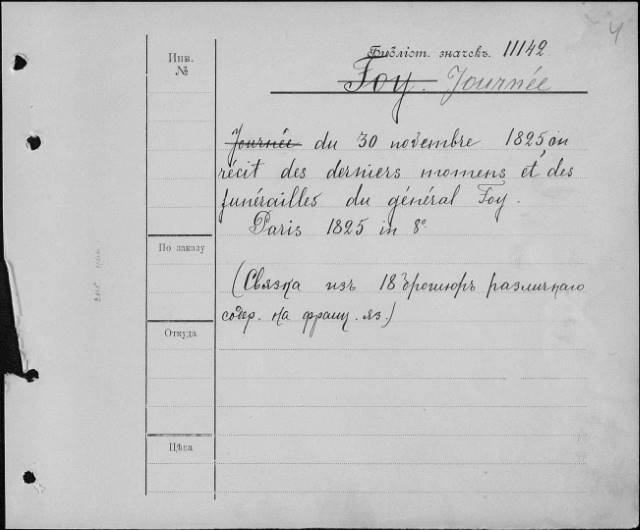 4
Библіот. значекъ. 11142
Инв.
№
Foy. Journée
Journée du 30 novembre 1825, ou
récit des derniers momens et des
funérailles du général Foy.
Paris 1825 in 8º
По заказу
(Связка изъ 18 брошюръ различнаго
содер. на франц. яз.)
Откуда
Цѣна